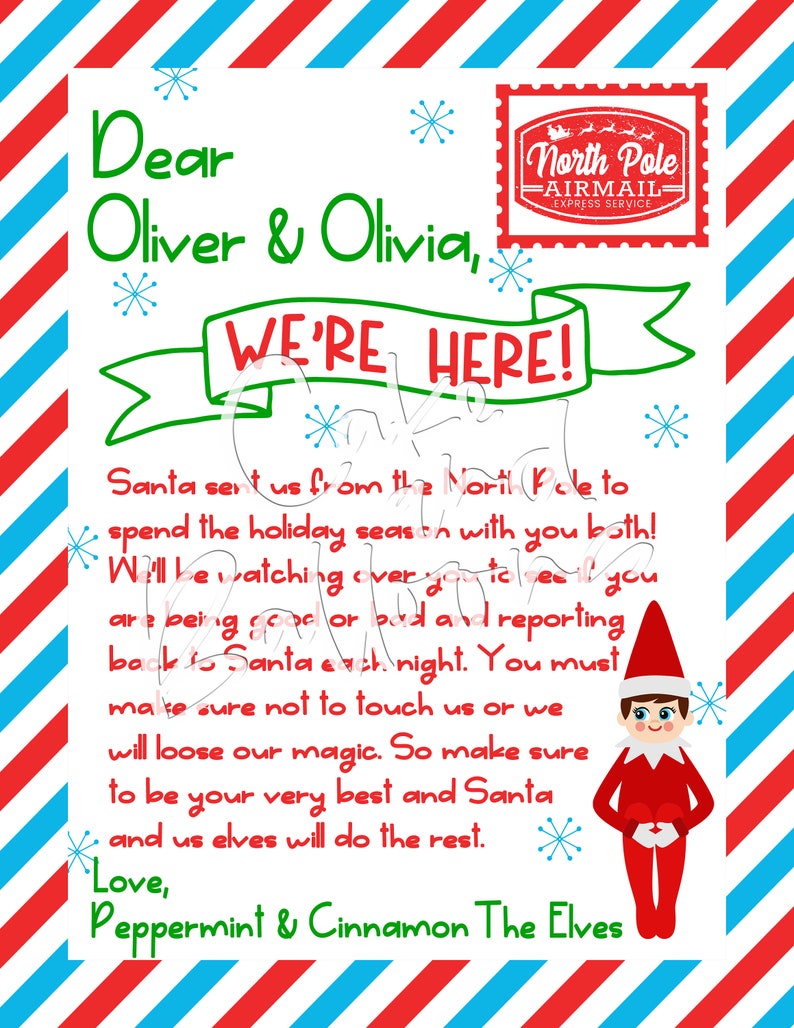 Dear
Oliver & Olivia,
North Pole
AIRMAIL
EXPRESS SERVICE
WE'RE HERE!
Cake
and
Balloons
Santa sent us from the North Pole to
spend the holiday season with you both!
We'll be watching over you to see if you
are being good or bad and reporting
back to Santa each night. You must
make sure not to touch us or we
will loose our magic. So make sure
to be your very best and Santa
and us elves will do the rest.
Love,
Peppermint & Cinnamon The Elves